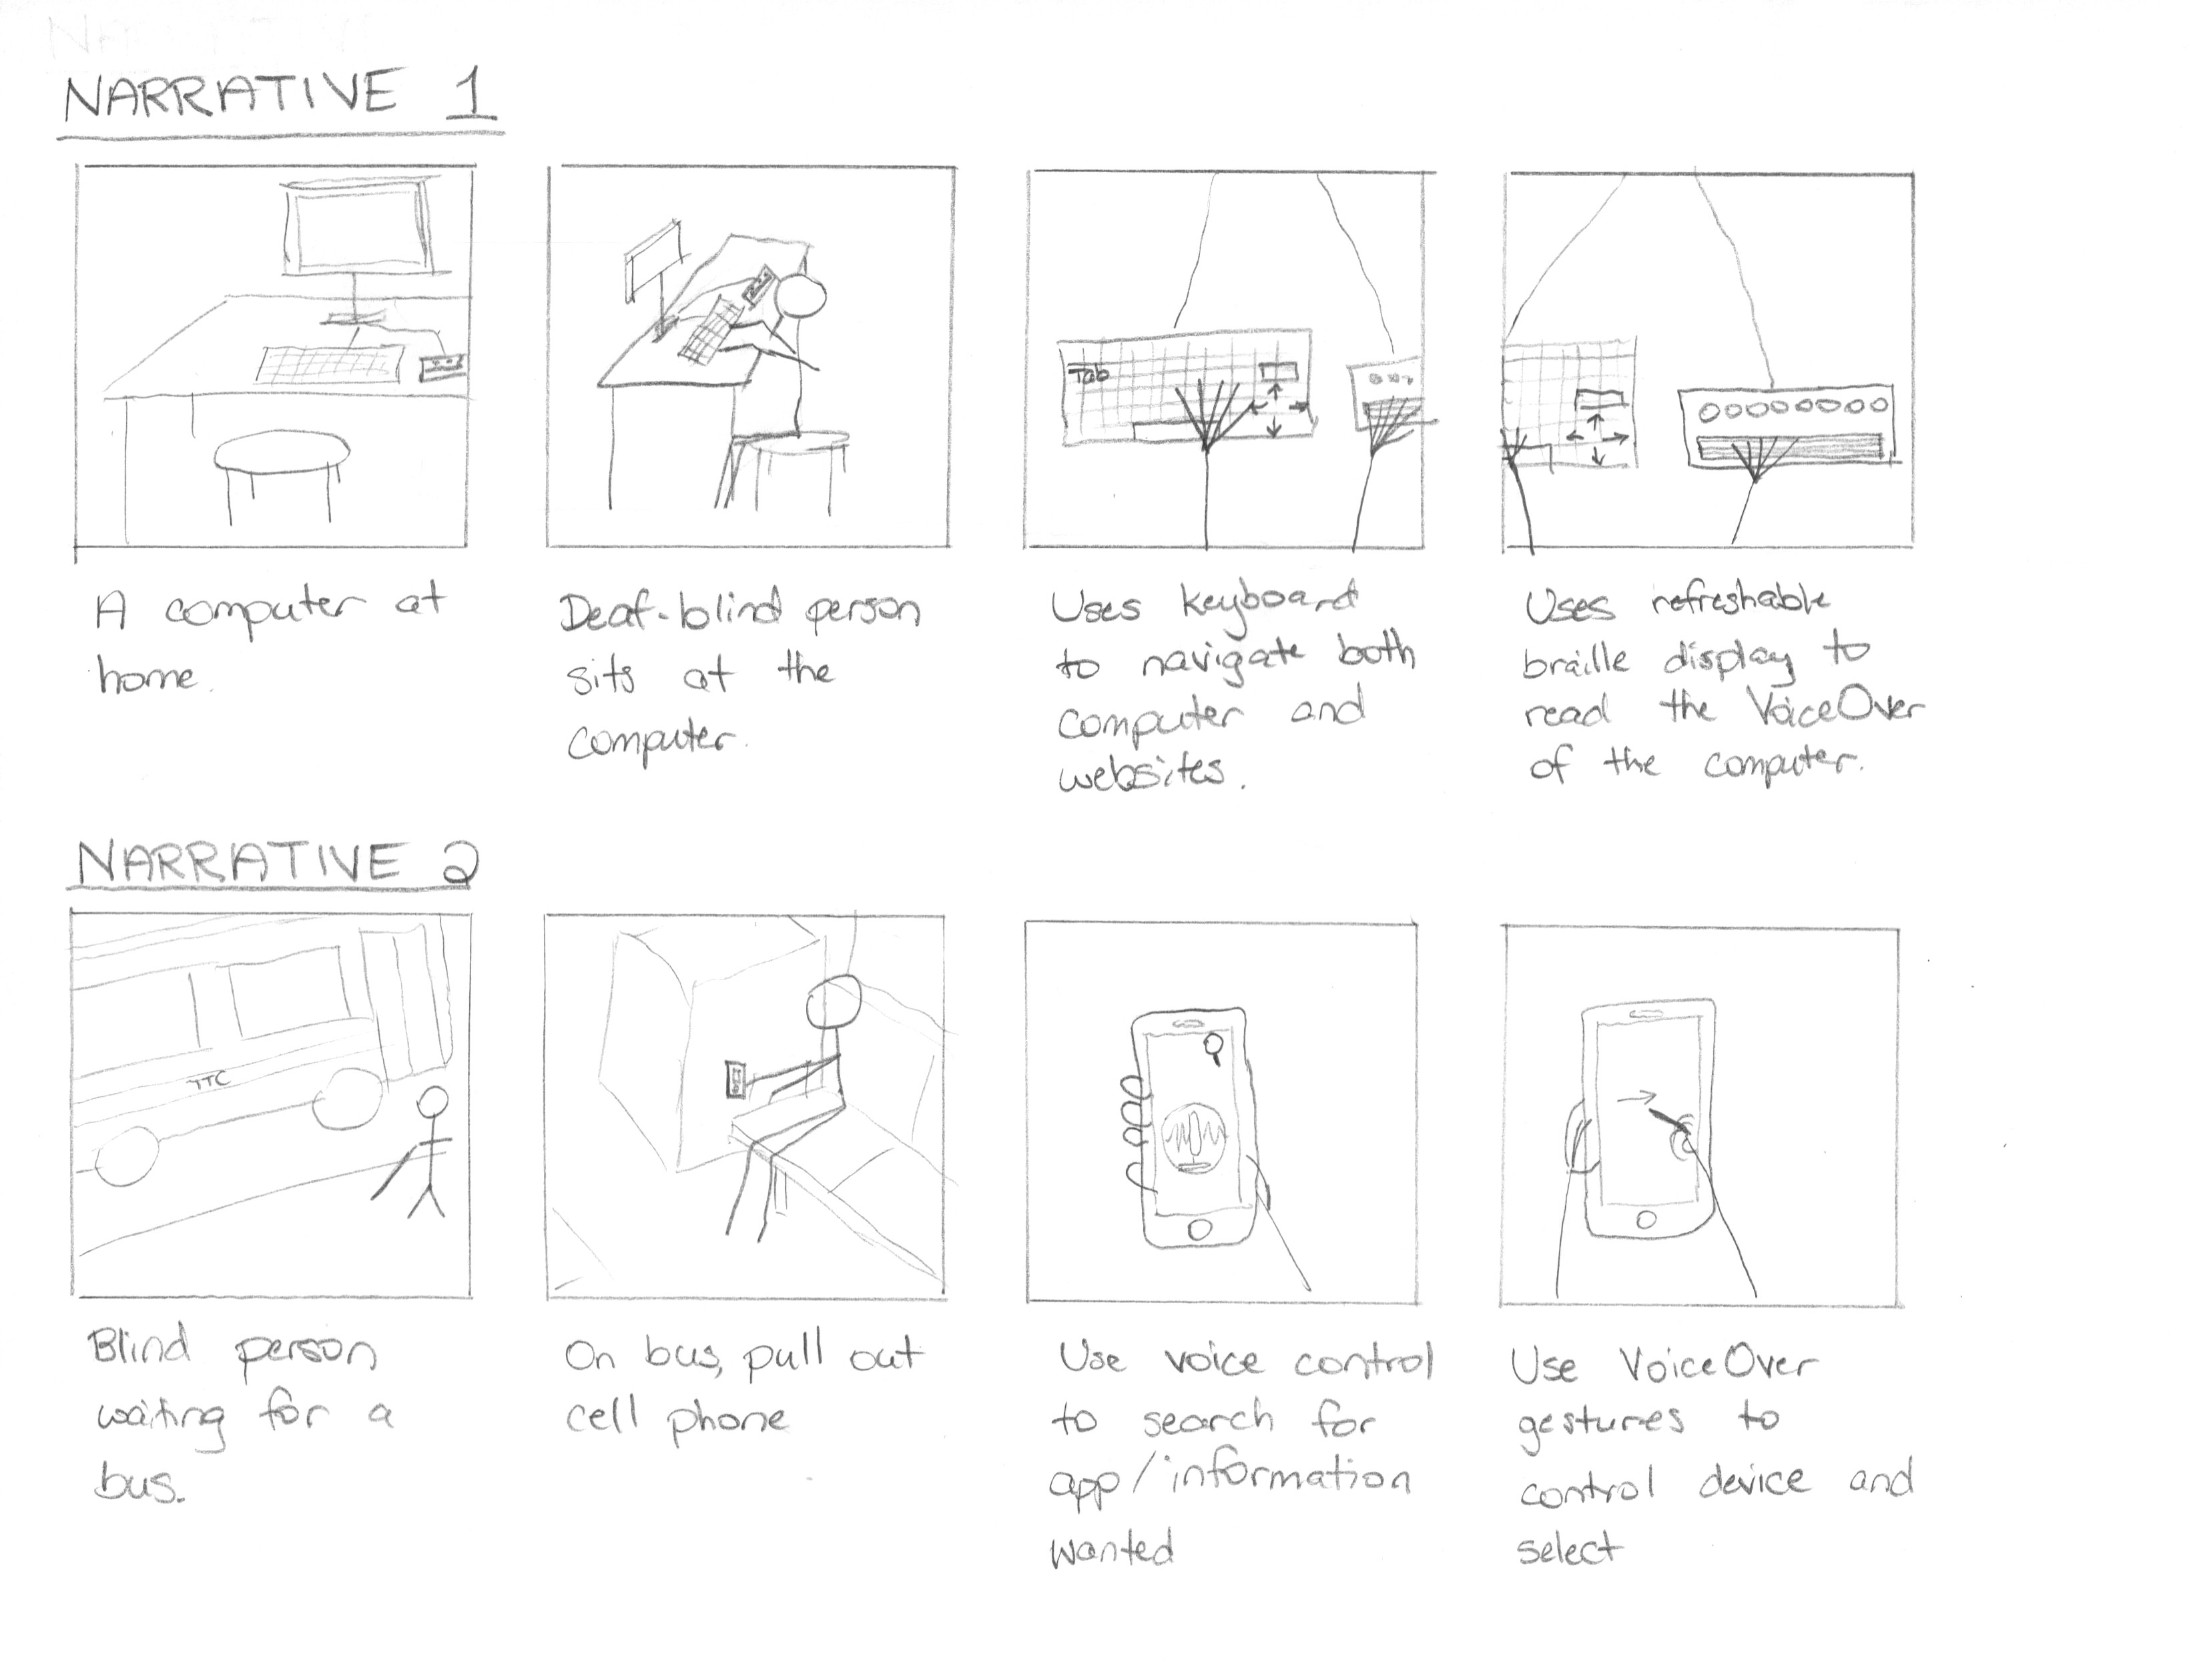 NARRATIVE 1
Tab
A computer at
home.
Deaf-blind person
sits at the
computer.
Uses keyboard
to navigate both
computer and
websites.
Uses refreshable
braille display to
read the VoiceOver
of the computer.
NARRATIVE 2
TTC
Blind person
waiting for a
bus.
On bus, pull out
cell phone
Use voice control
to search for
app/information
wanted
Use VoiceOver
gestures to
control device and
select